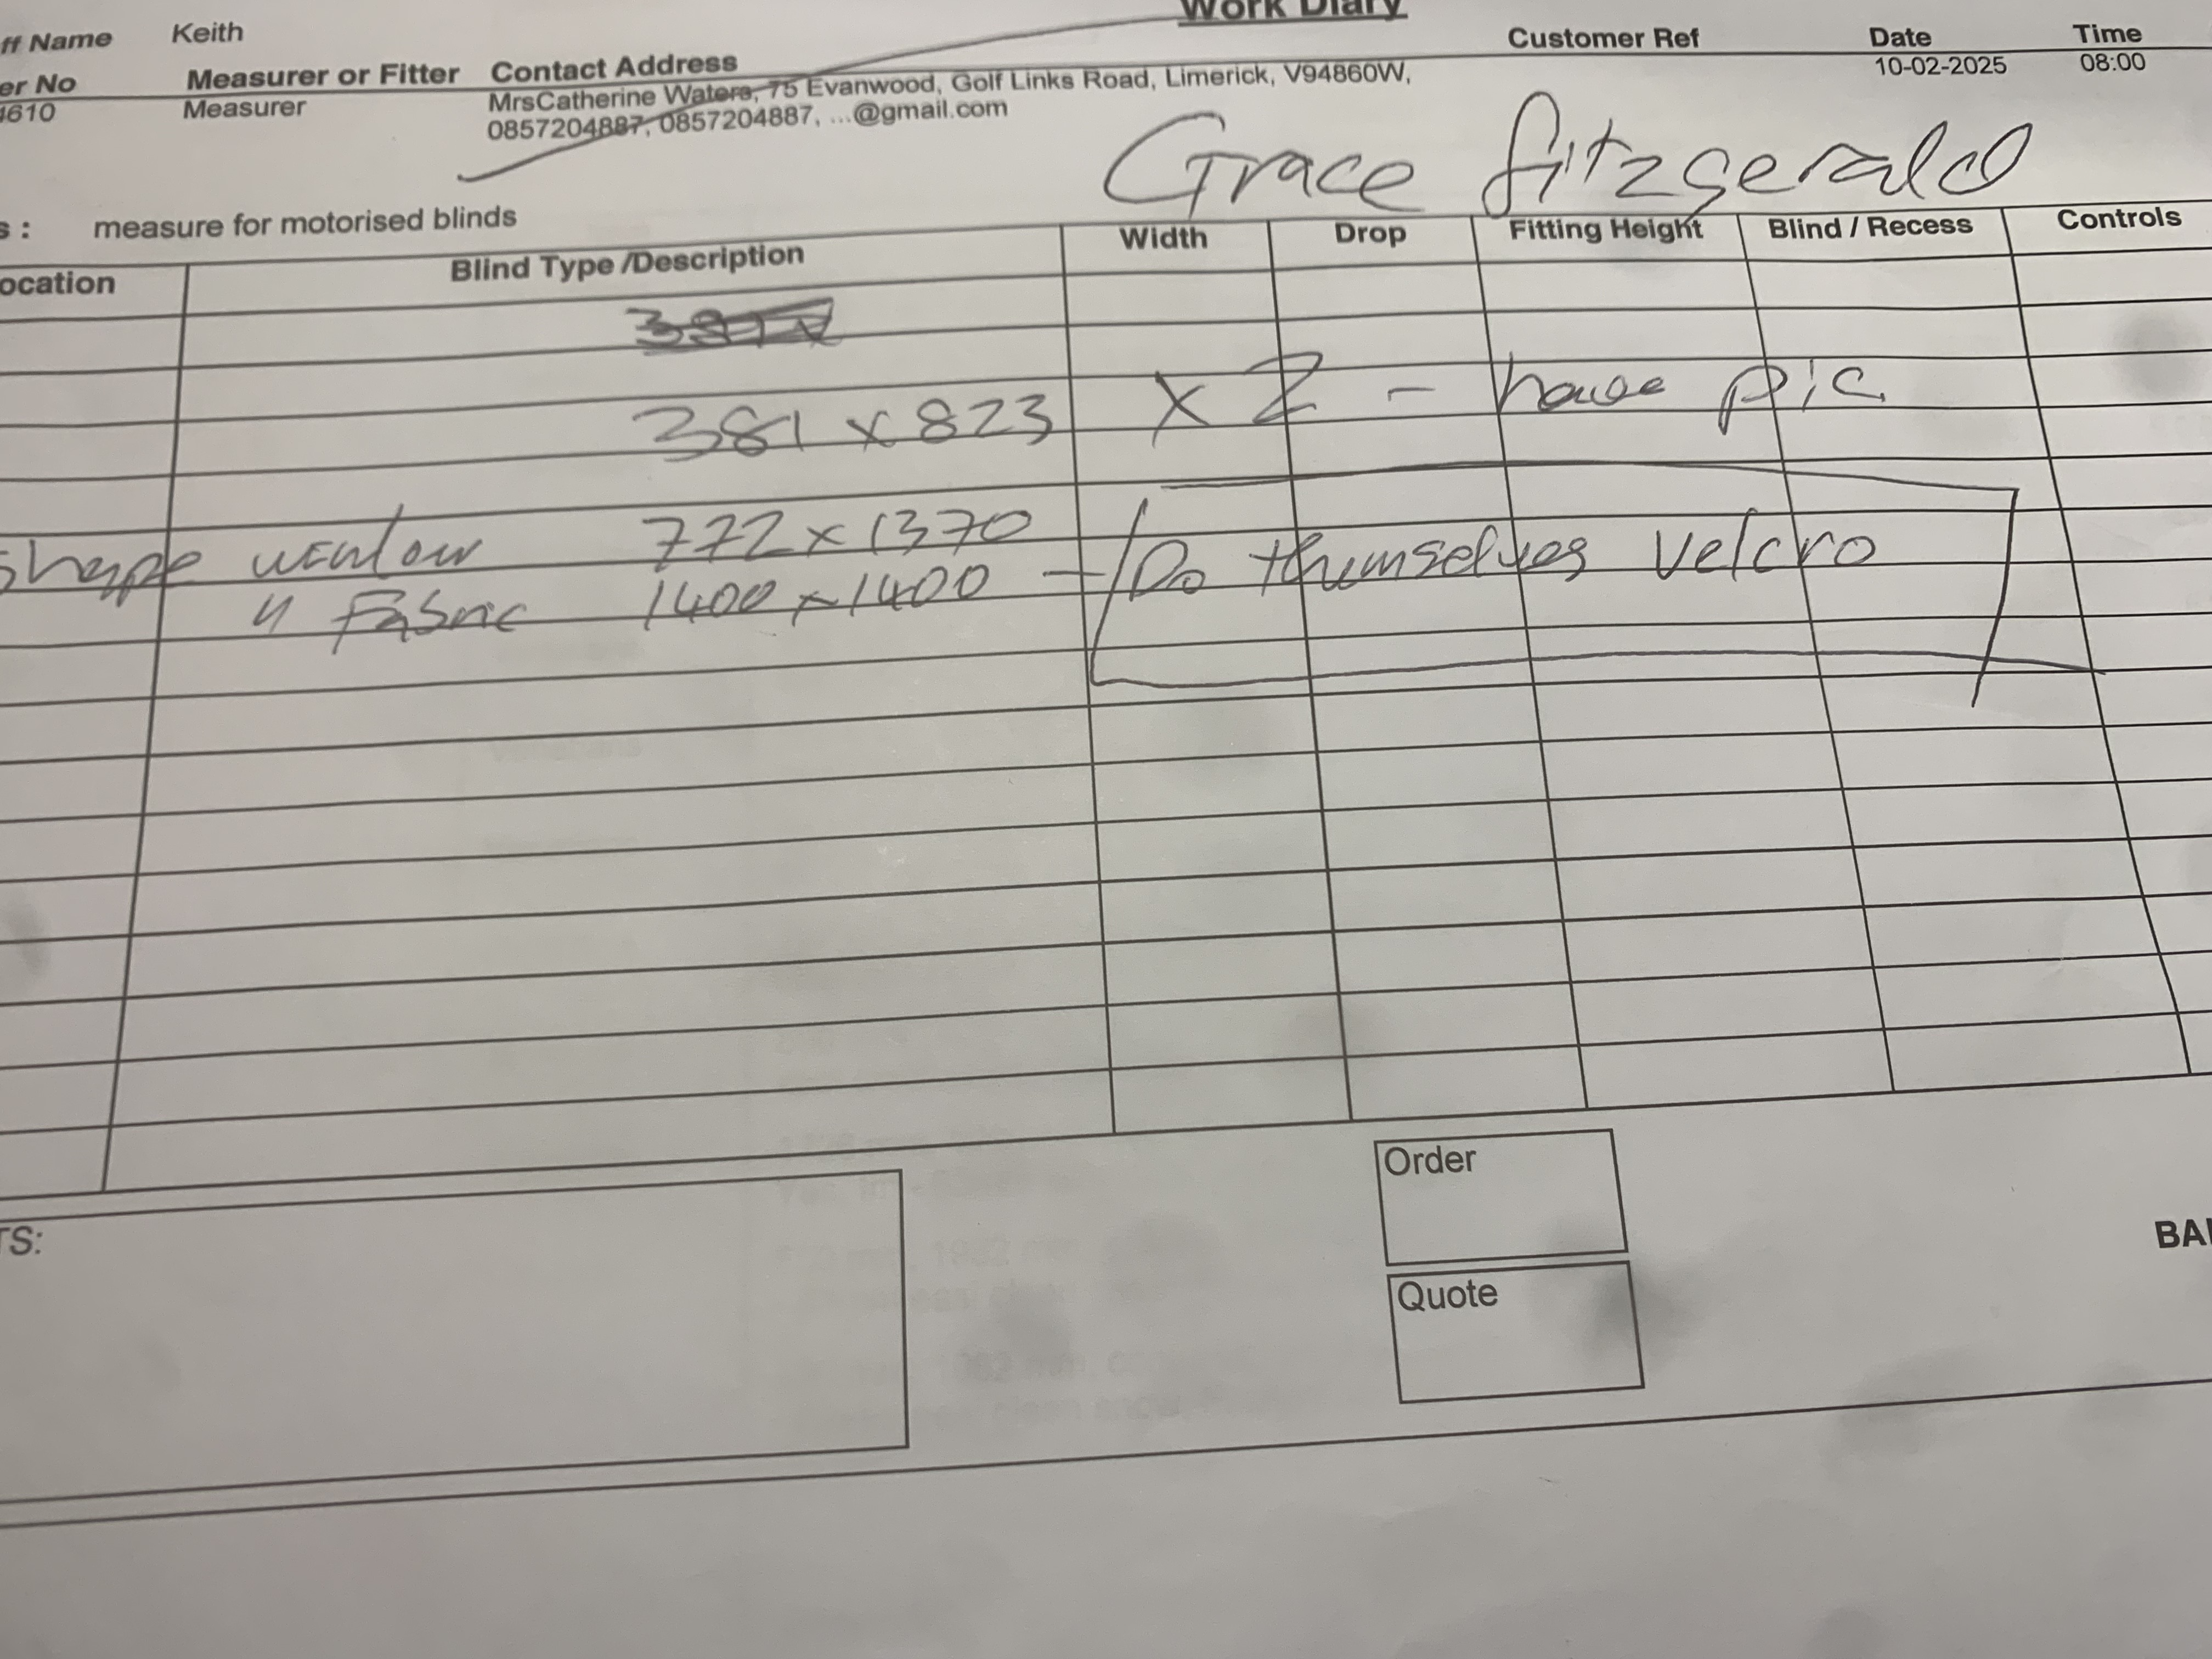 Work Diary
ff Name Keith Customer Ref Date Time
er No Measurer or Fitter Contact Address 10-02-2025 08:00
4610 Measurer MrsCatherine Waters, 75 Evanwood, Golf Links Road, Limerick, V94860W,
0857204887, 0857204887, ...@gmail.com
Grace fitzgerald
s : measure for motorised blinds
ocation Blind Type /Description Width Drop Fitting Height Blind / Recess Controls
381 x 823 x 2 - have pic
Shape window 772 x 1370
" Fabric 1400 x 1400 - Do themselves velcro
Order
TS:
BA
Quote